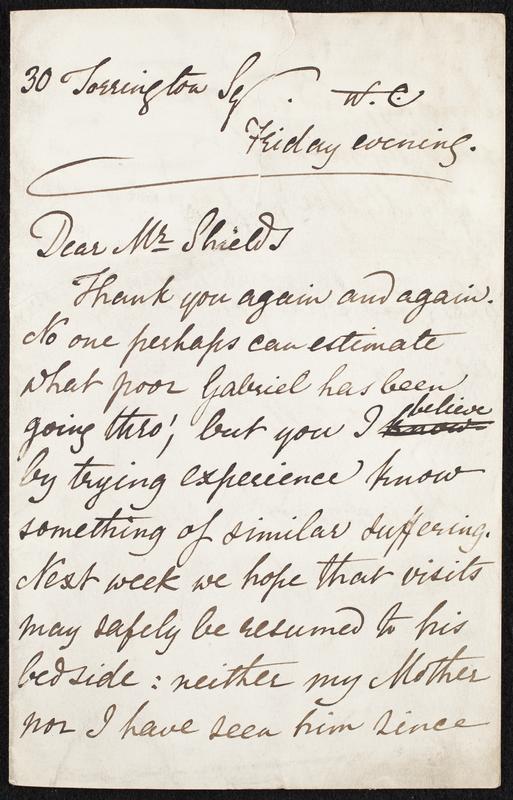 30 Torrington Sq. W.C.
Friday evening.
Dear Mr Shields
Thank you again and again.
No one perhaps can estimate
what poor Gabriel has been
going thro', but you I know believe
by trying experience know
something of similar suffering.
Next week we hope that visits
may safely be resumed to his
bedside: neither my Mother
nor I have seen him since